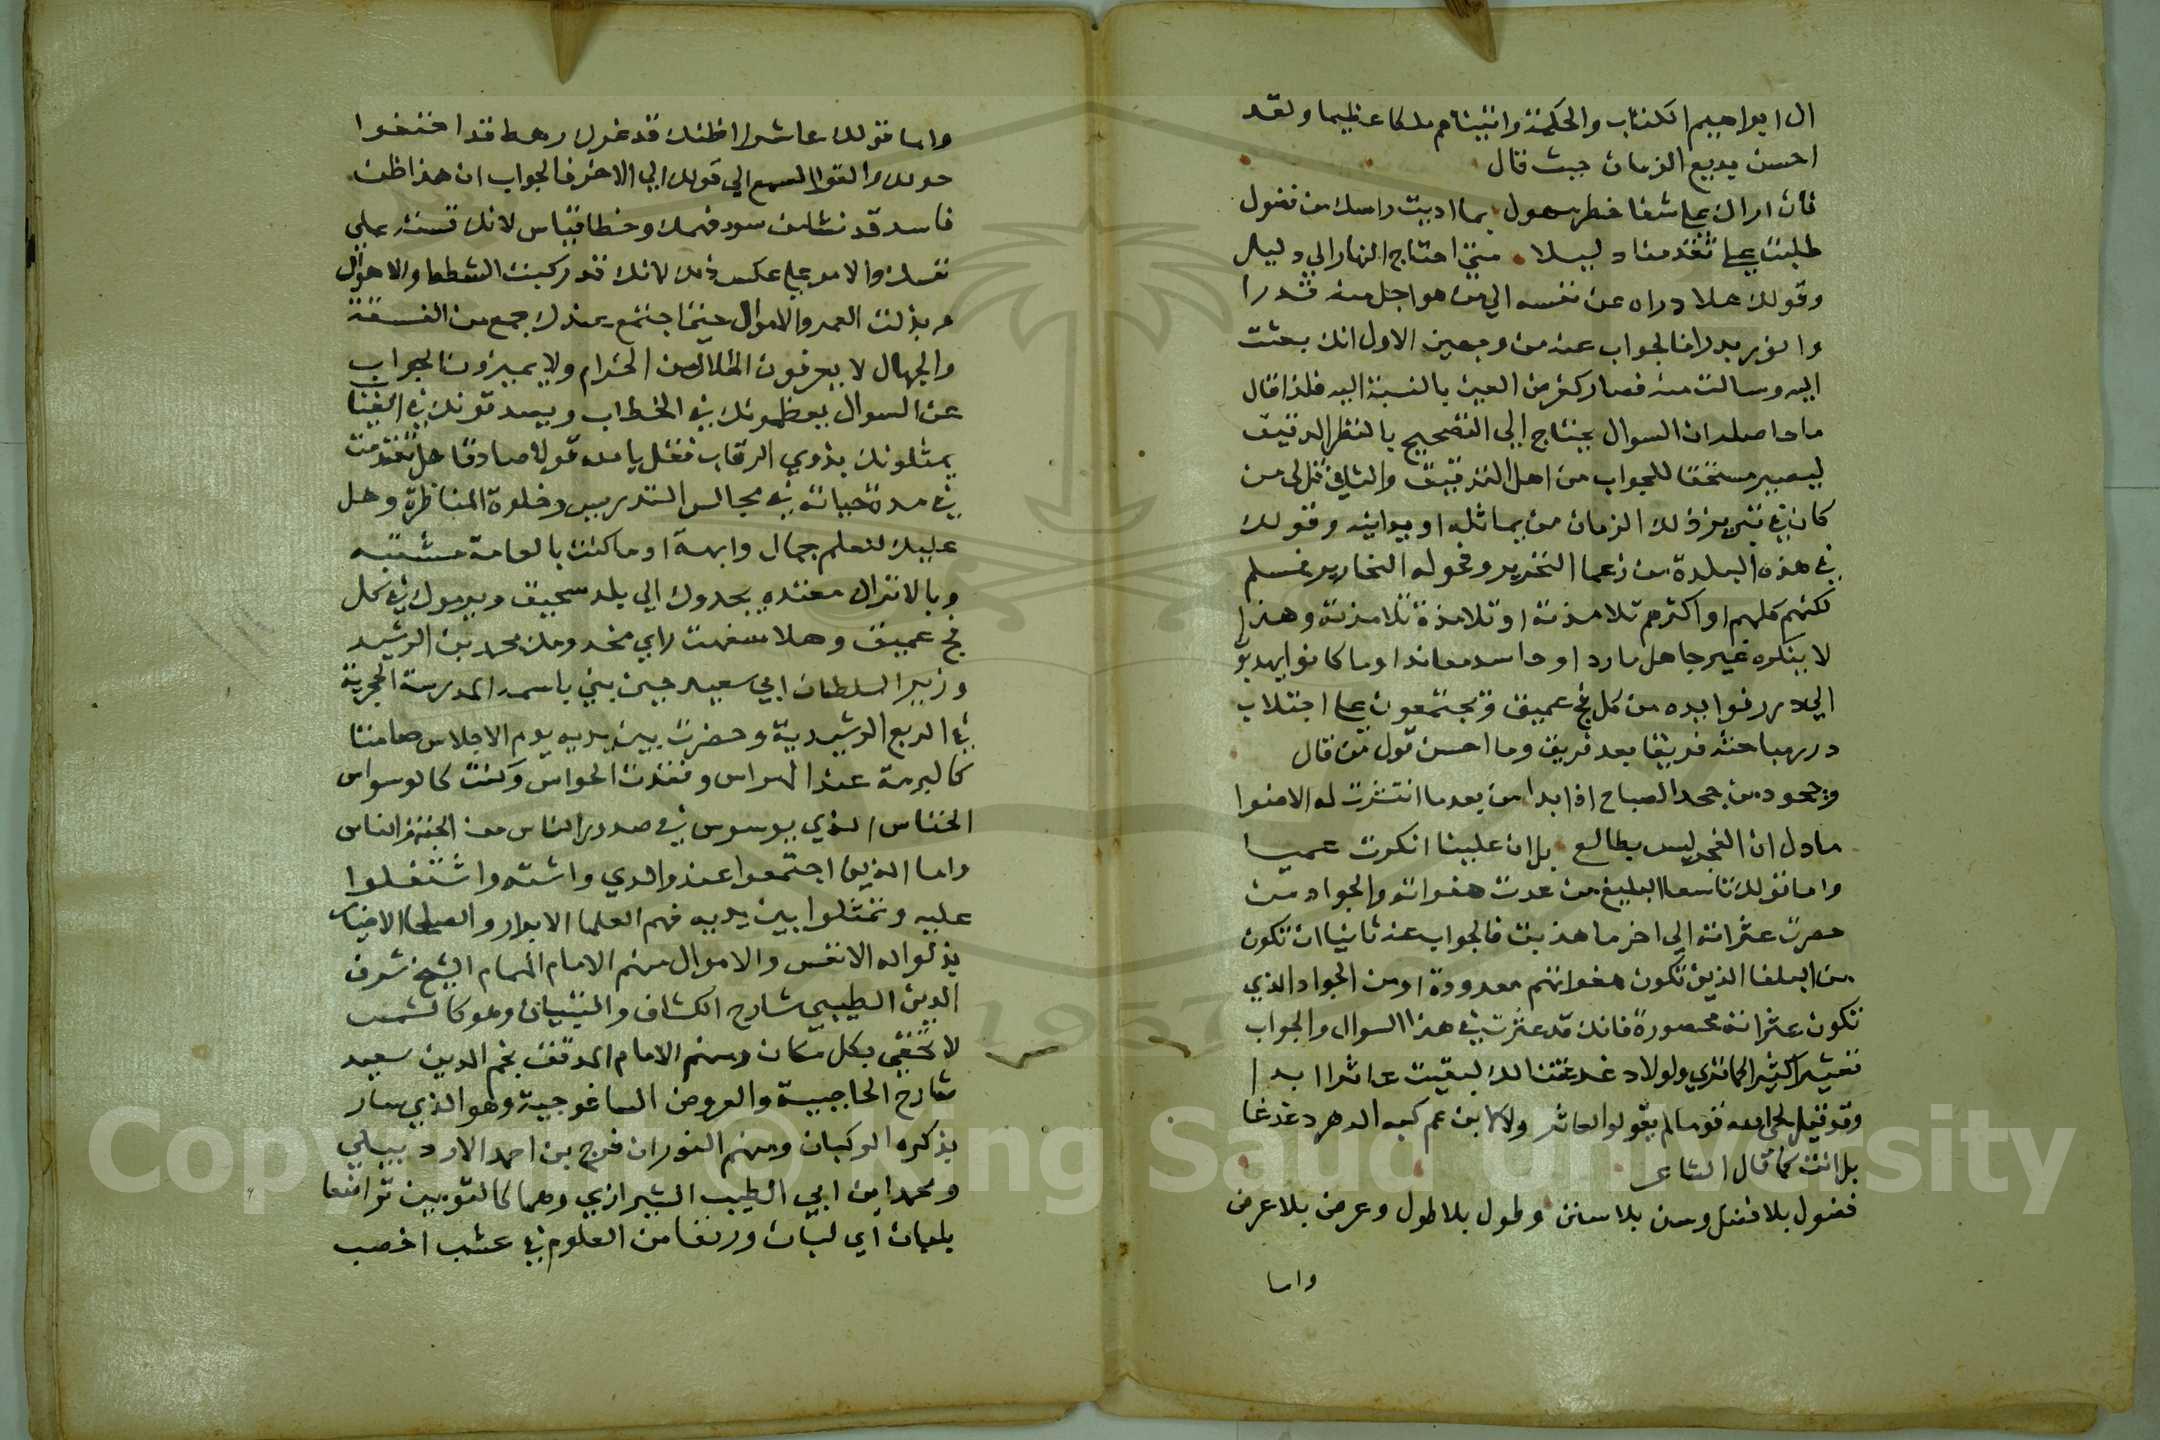 ال ابراهيم الكتاب والحكمة واتيناهم ملكا عظيما ولقد
احسن بديع الزمان حيث قال
فان اراك على شفا خطر مهول بما اديت راسك من فضول
طلبت على تقدمنا دليلا متى احتاج النهار الي دليل
وقولك هلا دراه عن نفسه الي من هو اجل منه قدرا
وانور بدرا فالجواب عنه من وجهين الاول انك بعثت
اليه وسالت منه فصار كفرض العين بالنسبة اليه فلذا قال
ما حاصله ان السوال يحتاج الي التصحيح بالنظر الدقيق
ليصير مستحقا للجواب من اهل التدقيق والثاني قل لى من
كان في تبريز ذلك الزمان من يماثله او يدانيه وقولك
في هذه البلدة من زعما التحرير وفحولة النحارير فمسلم
لكنهم كلهم او اكثرهم تلامذته او تلامذة تلامذته وهذا
لا ينكره غير جاهل مارد او حاسد معاند او ما كانوا يهدبو
الي درر فوايده من كل فج عميق ويجتمعون على اجتلاب
درر مباحثه فريقا بعد فريق وما احسن قول من قال
وجحود من جحد الصباح اذا بدا من بعد ما انتشرت له الاضوا
ما دل ان الفجر ليس بطالع بل ان عينا انكرت عميا
واما قولك تاسعا البليغ من عدت هفواته والجواد من
حصرت عثراته الي اخر ما هذيت فالجواب عنه ثانيا ان تكون
من البلغا الذين تكون هفواتهم معدودة او من الجواد الذي
تكون عثراته محصورة فانك قد عثرت في هذا السوال والجواب
تعثيرا كثيرا كما تري ولولا دغدغتنا لك لبقيت عاثرا ابدا
وقد قيل لحى الله قوما لم يقولوا لعاثر ولا لابن عم كبه الدهر دغدغا
بل انت كما قال الشاعر
فضول بلا فضل وسن بلا سنن وطول بلا طول وعرض بلا عرض
واما
واما قولك عاشرا اظنك قد غرك رهط قد احتفوا
حولك والقوا السمع الي قولك الي الاخر فالجواب ان هذا ظن
فاسد قد نشا من سوء فهمك وخطا قياس لانك قسته على
نفسك والامر على عكس ذلك لانك قد ركبت الشطط والاهوال
وبذلت العمر والاموال حتى اجتمع عندك جمع من الفسقة
والجهال لا يعرفون الحلال من الحرام ولا يميزون الجواب
عن السوال يعظمونك في الخطاب ويصدقونك في الغياب
يمثلونك بذوي الرقاب فقل يا لله قولا صادقا هل تقدمت
في مدة حياته في مجالس التدريس وخلوة المناظرة وهل
عليك للعلم جمال وابهة او ما كنت بالعامة مشتبه
وبالاتراك مقتده يجدوك الي بلد سحيق ويرموك في كل
فج عميق وهلا سفهت راي مخدومك محمد بن الرشيد
وزير السلطان ابي سعيد حين بني باسمه المدرسة الحجرية
في الربع الرشيدية وحضرت بين يديه يوم الاجلاس صامتا
كالبرمة عند الهراس وفقدت الحواس وكنت كالوسواس
الخناس الذي يوسوس في صدور الناس من الجنة والناس
واما الذين اجتمعوا عند والدي واشته واشتغلوا
عليه وتمثلوا بين يديه فهم العلما الابرار والصلحا الاخيار
بذلوا له الانفس والاموال منهم الامام الهمام الشيخ شرف
الدين الطيبي شارح الكشاف والتبيان وهو كالشمس
لا تخفي بكل مكان ومنهم الامام المدقق نجم الدين سعيد
شارح الحاجبية والعروض الساغوجية وهو الذي سار
بذكره الركبان ومنهم النوران فرج بن احمد الاردبيلي
ومحمد ابن ابي الطيب الشيرازي وهما كالتوءمين تراضعا
بلبان اي لبان ورتعا من العلوم في عشب اخصب